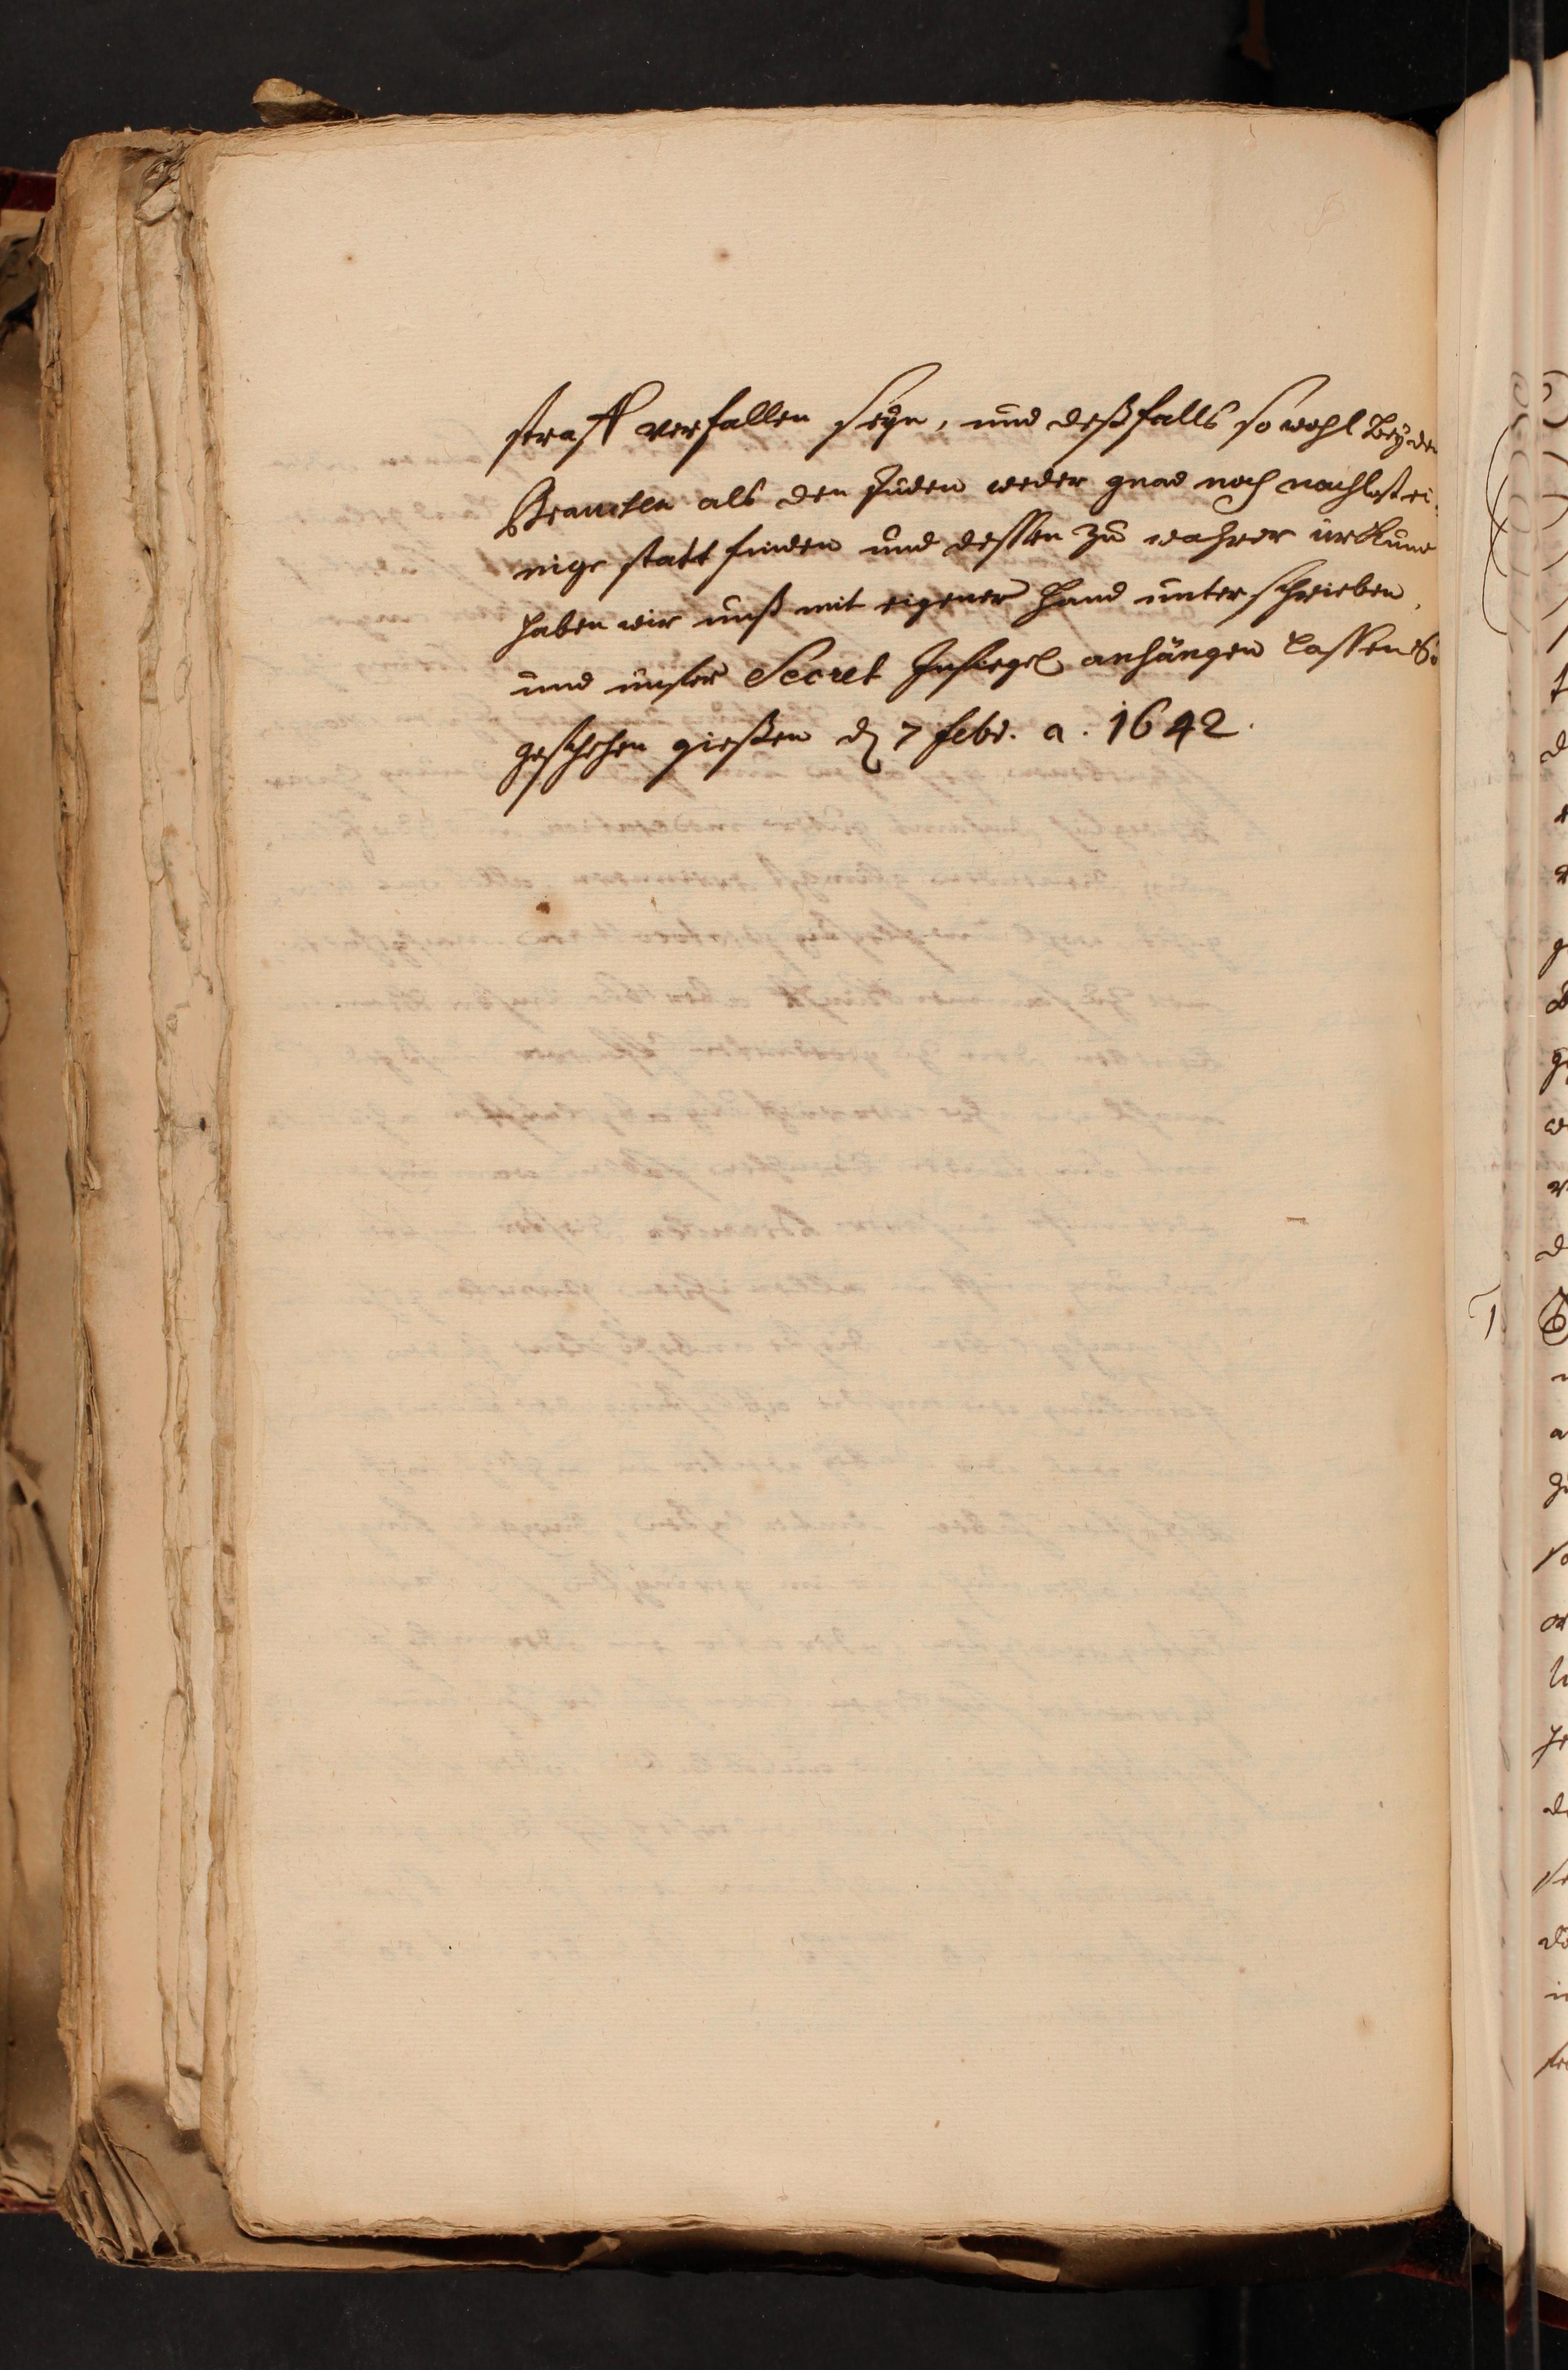 straff verfallen seyn, und deßfalls so wohl bey den
Beamten als den Juden weder gnad noch nachlaß ei-
nige statt finden und dessen zu wahrer urkund
haben wir unß mit eigener Hand unterschrieben,
und unser Secret Insiegel anhängen lassen So
geschehen gießen d 7 febr. a. 1642.